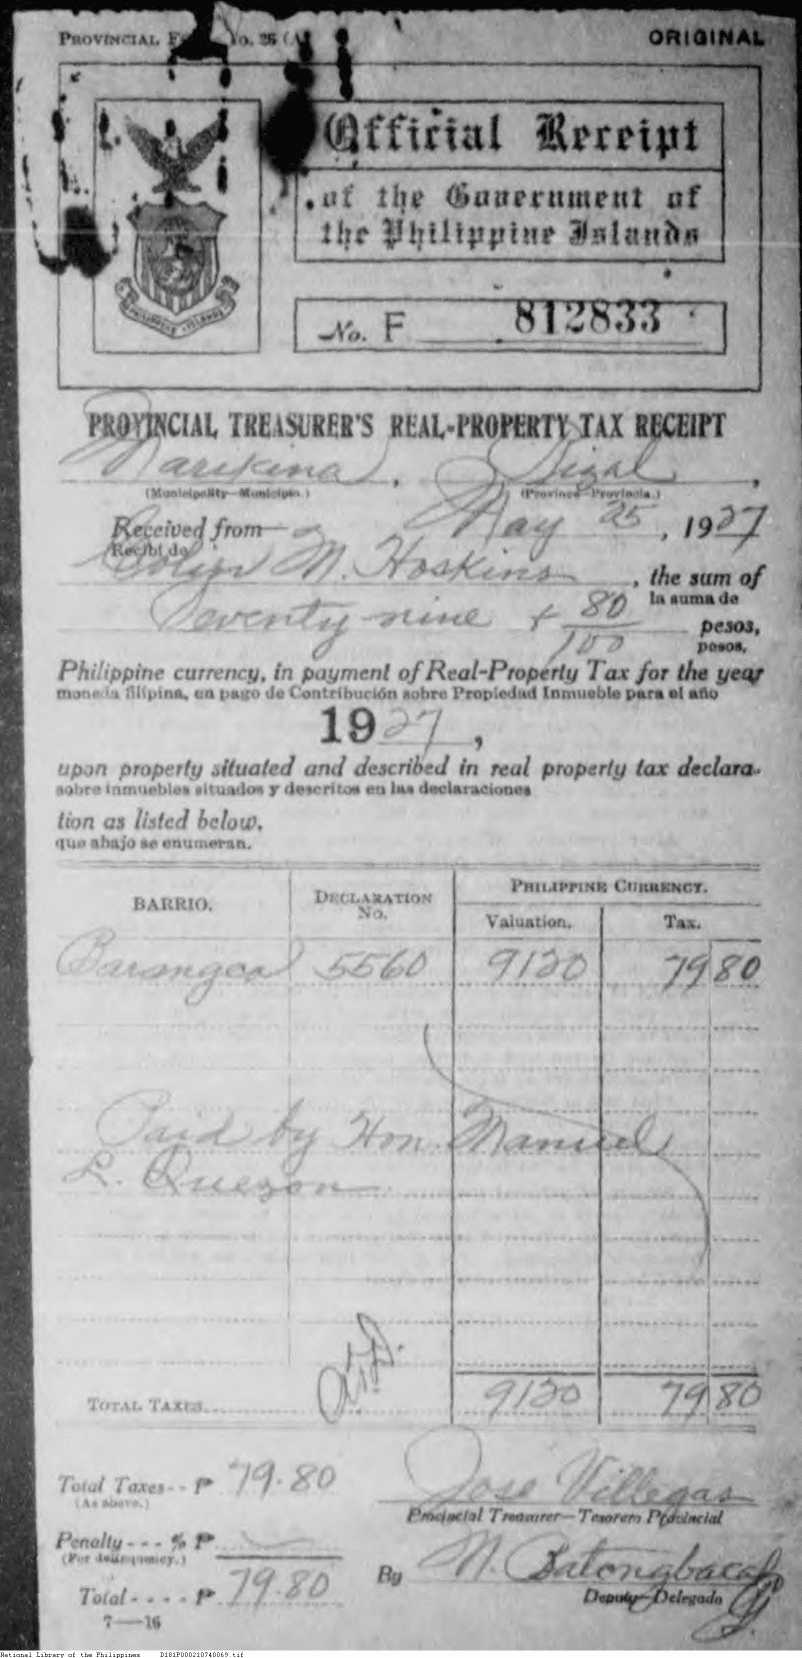 PROVINCIAL No. 26 (A)
ORIGINAL
Official Receipt
of the Government of
the Philippine Islands
PHILIPPINE ISLANDS
No. F 812833
PROVINCIAL TREASURER'S REAL-PROPERTY TAX RECEIPT
Marikina, Rizal,
(Municipality—Municipio.) (Province—Provincia.)
Received from May 25, 1927
Recibí de
M. Hoskins, the sum of
la suma de
Seventy-nine + 80/100 pesos,
pesos,
Philippine currency, in payment of Real-Property Tax for the year
moneda filipina, en pago de Contribución sobre Propiedad Inmueble para el año
1927,
upon property situated and described in real property tax declara-
sobre inmuebles situados y descritos en las declaraciones
tion as listed below.
que abajo se enumeran.
BARRIO. DECLARATION No. PHILIPPINE CURRENCY.
Valuation. Tax.
Barangca 5560 9120 79 80
Paid by Hon. Manuel
L. Quezon
TOTAL TAXES 9120 79 80
Total Taxes-- ₱ 79.80
(As above.)
Jose Villegas
Provincial Treasurer—Tesorero Provincial
Penalty --- % ₱
(For delinquency.)
By N. Batongbacal
Deputy—Delegado
Total---- ₱ 79.80
7—16
National Library of the Philippines D181P000210740069.tif